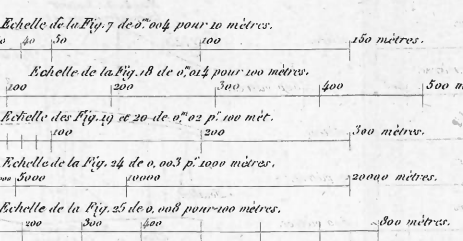 Echelle de la Fig. 7 de 0,m 004 pour 10 mètres.
40 50 100 150 mètres.
Echelle de la Fig. 18 de 0,m 014 pour 100 mètres.
100 200 300 400 500 m
Echelle des Fig. 19 et 20 de 0,m 02 pr. 100 mèt.
100 200 300 mètres.
Echelle de la Fig. 24 de 0,003 pr. 1000 mètres.
5000 10000 20000 mètres.
Echelle de la Fig. 25 de 0,008 pour 100 mètres.
200 300 400 800 mètres.